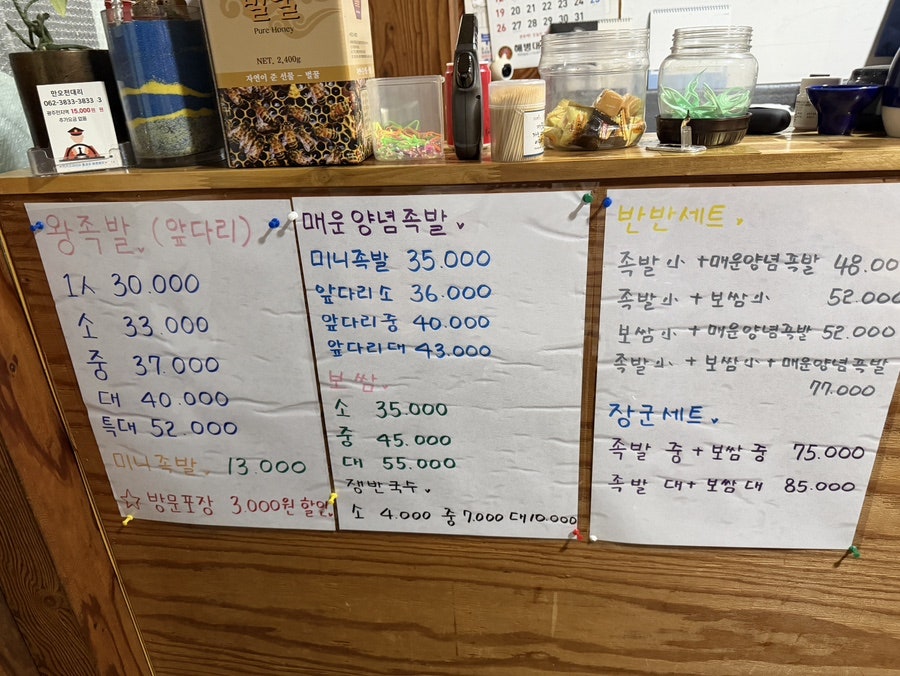 만오전대리
062-3833-3833
광주전지역 15,000원
추가요금 없음
Pure Honey
NET, 2,400g
자연이 준 선물 - 벌꿀
19 20 21 22 23 24 25
26 27 28 29 30 31
해병대
왕족발 (앞다리)
1人 30.000
소 33.000
중 37.000
대 40.000
특대 52.000
미니족발 13.000
☆ 방문포장 3.000원 할인
매운양념족발
미니족발 35.000
앞다리 소 36.000
앞다리 중 40.000
앞다리 대 43.000
보쌈
소 35.000
중 45.000
대 55.000
쟁반국수
소 4.000 중 7.000 대 10.000
반반세트
족발 小 + 매운양념족발 48.00
족발 小 + 보쌈 小 52.000
보쌈 小 + 매운양념족발 52.000
족발 小 + 보쌈 小 + 매운양념족발
77.000
장군세트
족발 중 + 보쌈 중 75.000
족발 대 + 보쌈 대 85.000